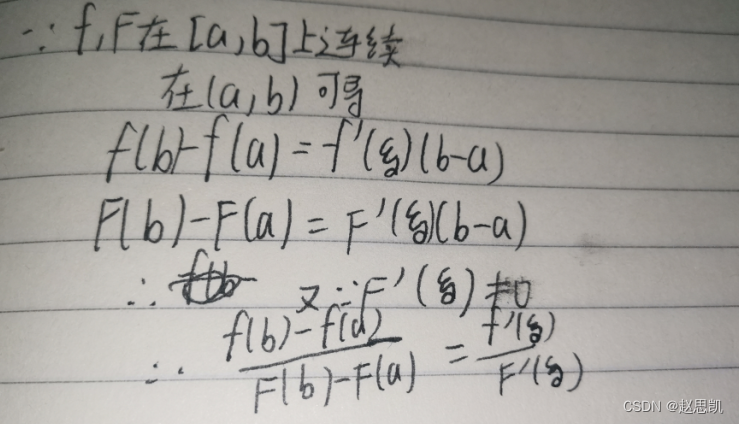 ∵ f,F在[a,b]上连续
在(a,b)可导
f(b)-f(a)=f'(ξ)(b-a)
F(b)-F(a)=F'(ξ)(b-a)
∴ 又∵F'(ξ)≠0
∴ \frac{f(b)-f(a)}{F(b)-F(a)} = \frac{f'(ξ)}{F'(ξ)}
CSDN @赵思凯